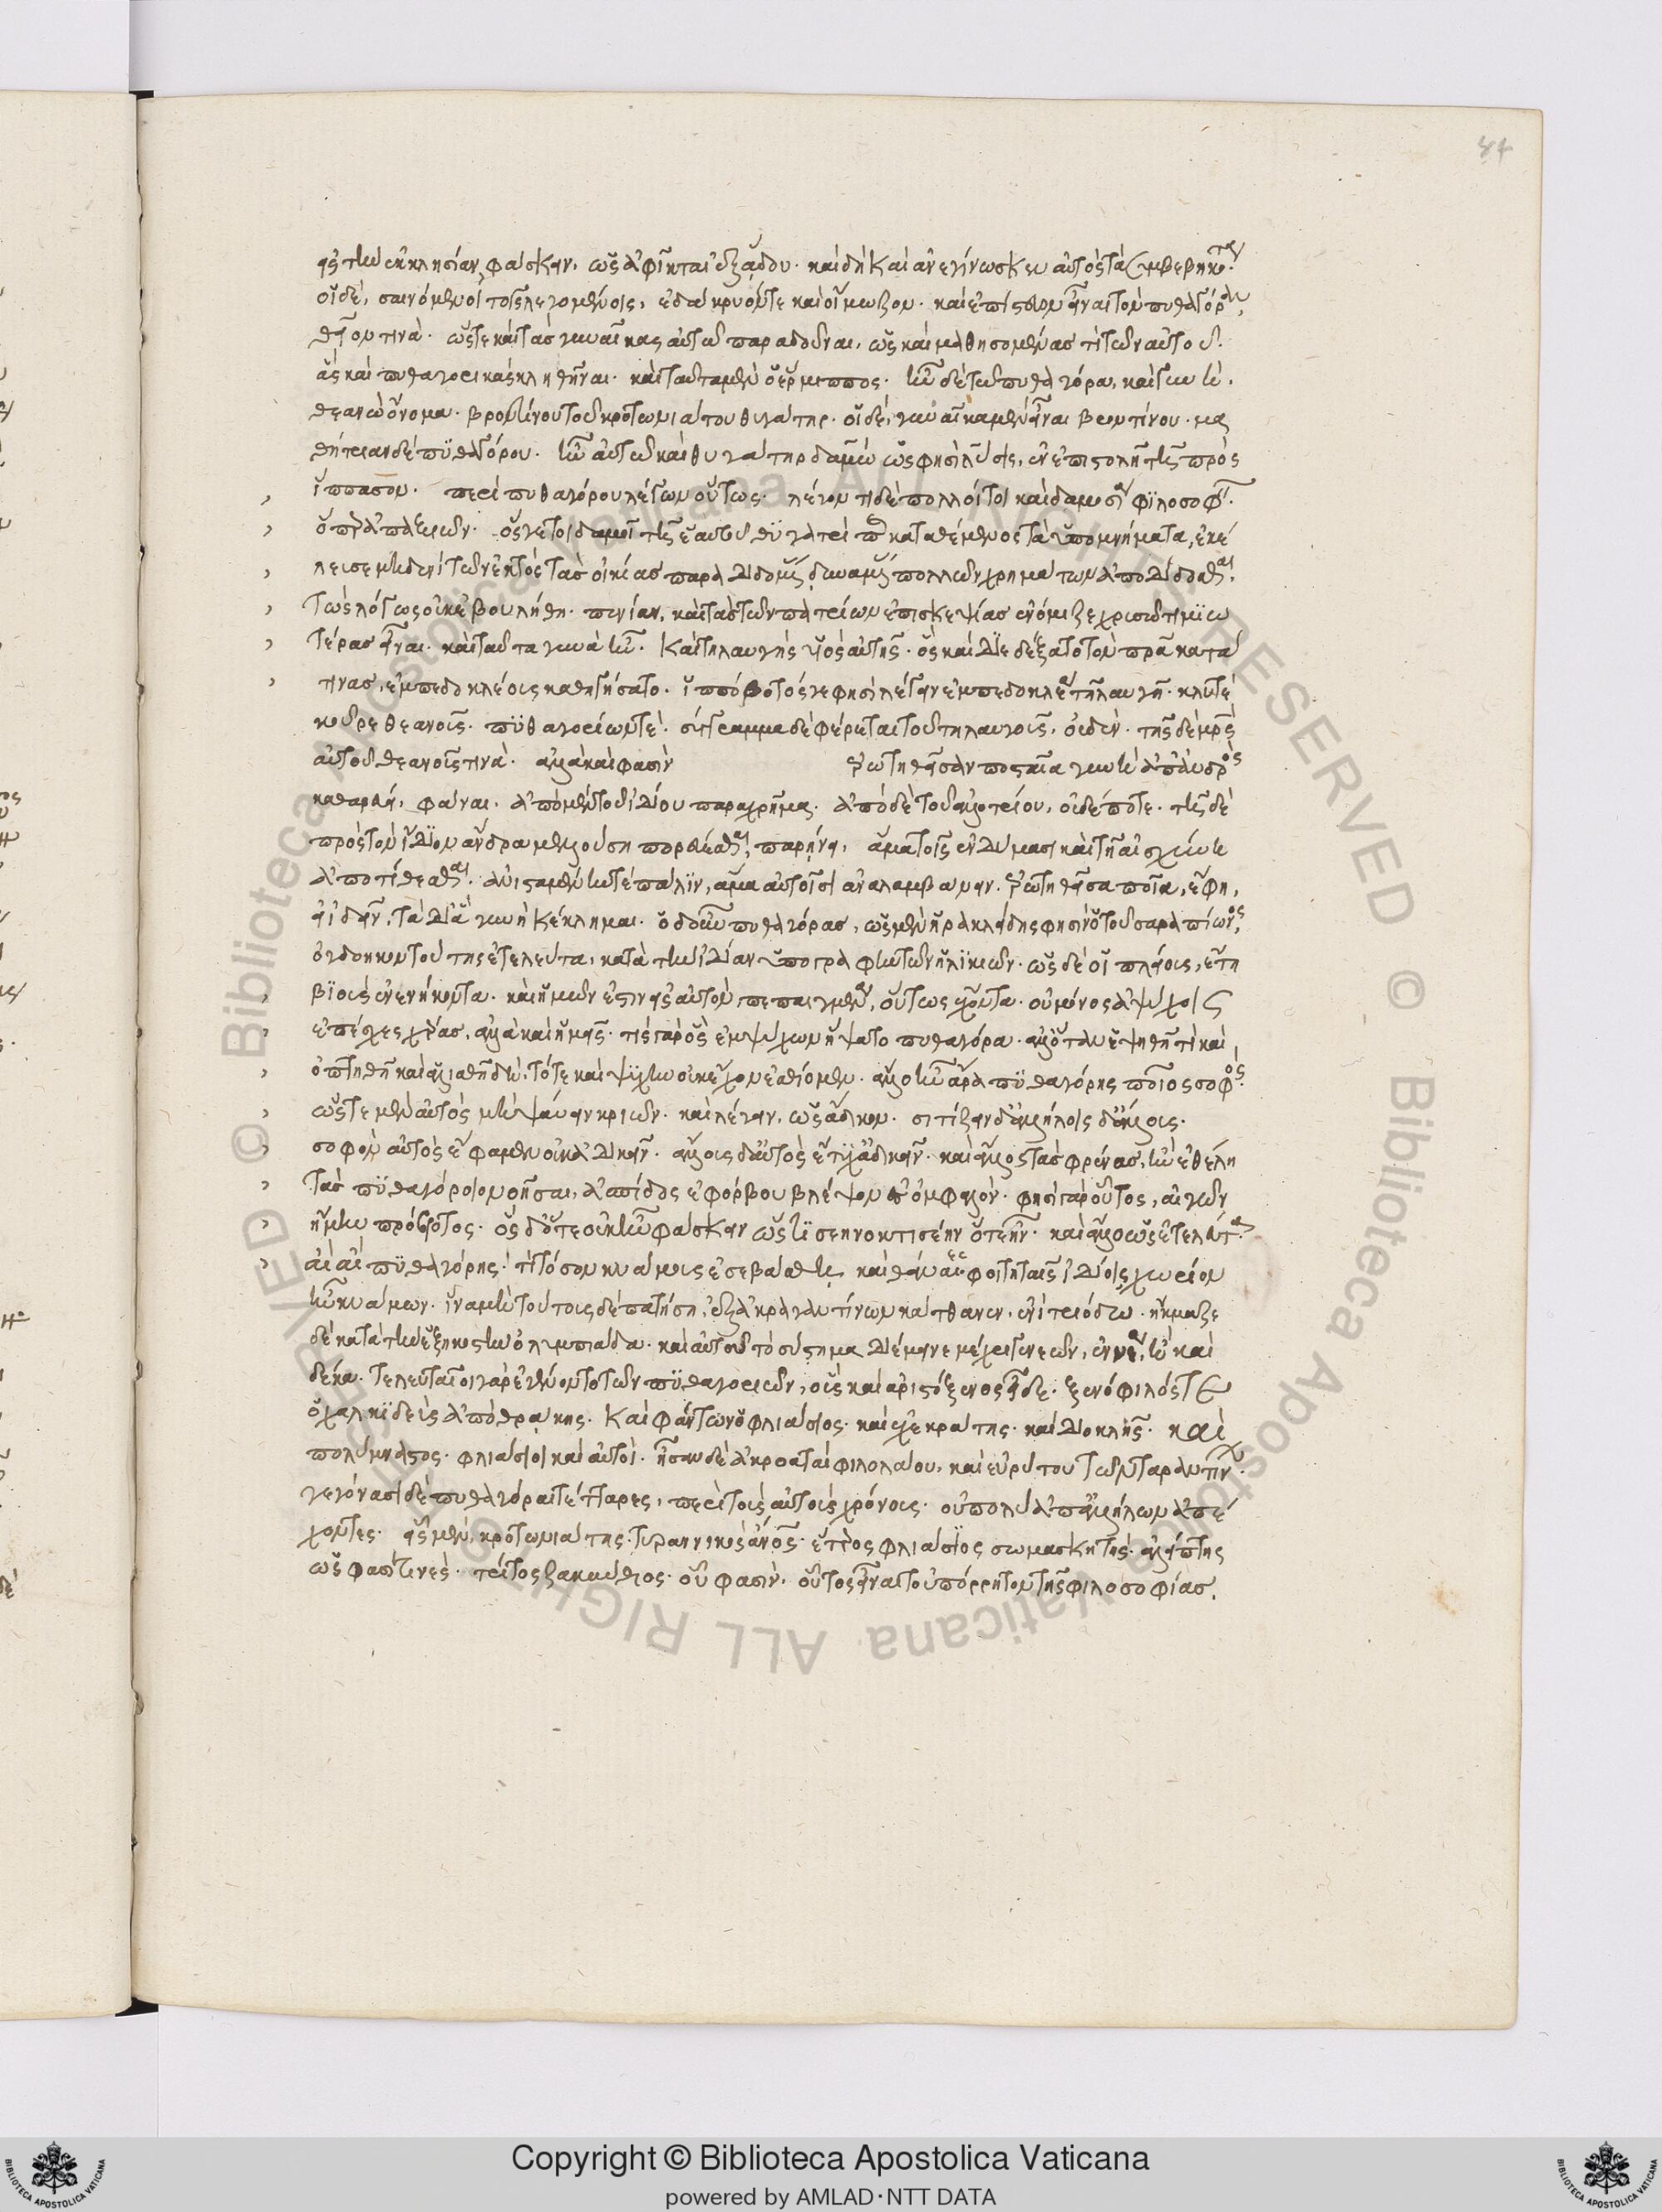 εἰς τὴν ἐκκλησίαν φάσκειν, ὡς ἀφῖκται ἐξ ᾅδου. καὶ δὴ καὶ ἀνεγίνωσκεν αὐτοῖς τὰ συμβεβηκότα.
οἱ δὲ, σαινόμενοι τοῖς λεγομένοις, ἐδάκρυόν τε καὶ οἴμωζον. καὶ ἐπίστευον εἶναι τὸν πυθαγόραν
θεῖόν τινα. ὥστε καὶ τὰς γυναῖκας αὐτῷ παραδοῦναι, ὡς καὶ μαθησομένας τὶ τῶν αὐτοῦ.
ἃς καὶ πυθαγορικὰς κληθῆναι. καὶ ταῦτα μὲν ὁ ἕρμιππος. ἦν δὲ τῷ πυθαγόρα, καὶ γυνὴ.
θεανὼ ὄνομα. βροντίνου τοῦ κροτωνιάτου θυγάτηρ. οἱ δὲ, γυναῖκα μὲν εἶναι βροντίνου. μα
θήτριαν δὲ πυθαγόρου. ἦν αὐτῷ καὶ θυγάτηρ δαμὼ ὥς φησι λῦσις, ἐν ἐπιστολῇ τῇ πρὸς
ἵππασον. περὶ πυθαγόρου λέγων οὕτως. λέγοντι δὲ πολλοί τοι καὶ δαμοσίᾳ φιλοσοφεῖν.
ὅπερ ἀπάξιον. ὅς γέ τοι δαμοῖ τῇ ἑαυτοῦ θυγατρὶ παρακαταθέμενος τὰ ὑπομνήματα, ἐπέ
λεισε μηδενὶ τῶν ἐκτὸς τᾶς οἰκίας παραδιδόμεν δυναμένα πολλῶν χρημάτων ἀποδίδοσθαι.
τὼς λόγως οὐκ ἐβουλήθη. πενίαν, καὶ τὰς τῶν πατρίων ἐπισκέψιας ἐνόμιζε χρυσῶ τιμιω
τέρας εἶναι. καὶ ταῦτα γυνὰ ἦν. καὶ τηλαυγὴς υἱὸς αὐτοῖς. ὃς καὶ διεδέξατο τὸν πατέρα κατά
τινας, ἐμπεδοκλέους καθηγήσατο. ἱππόβοτός γε φησὶ λέγειν ἐμπεδοκλέα τήλαυγη. κλυτὲ
κοῦρε θεανοῦς. πυθαγορέω τὲ. σύγγραμμα δὲ φέρεται τοῦ τηλαυγοῦς, οὐδὲν. τῆς δὲ μητρὸς
αὐτοῦ θεανοῦς τινὰ. ἀλλὰ καὶ φασὶν ἐρωτηθεῖσαν ποσταία γυνὴ ἀπ' ἀνδρὸς
καθαρεύει, φάναι. ἀπὸ μὲν τοῦ ἰδίου παραχρῆμα. ἀπὸ δὲ τοῦ ἀλλοτρίου, οὐδέποτε. τῇ δὲ
πρὸς τὸν ἴδιον ἄνδρα μελλούση πορεύεσθαι, παρῄνει, ἅμα τοῖς ἐνδύμασι καὶ τὴν αἰσχύνην
ἀποτίθεσθαι. ἀνισταμένην τὲ πάλιν, ἅμα αὐτοῖσι ἀναλαμβάνειν. ἐρωτηθεῖσα ποῖα, ἔφη,
τὰ δι' ἃ γυνὴ κέκλημαι. ὁ δ' οὖν πυθαγόρας, ὡς μὲν ἡρακλείδης φησὶν ὁ τοῦ σαραπίωνος,
ὀγδοηκοντούτης ἐτελεύτα, κατὰ τὴν ἰδίαν ὑπογραφὴν τῶν ἡλικιῶν. ὡς δὲ οἱ πλείους, ἔτη
βιοὺς ἐνενήκοντα. καὶ ἡμῶν ἐστιν εἰς αὐτὸν πεπαιγμένα, οὕτως ἔχοντα. οὐ μόνος ἀψύχοις
ἐπέχες χέρας, ἀλλὰ καὶ ἡμεῖς. τίς γὰρ ὃς ἐμψύχων ἥψατο πυθαγόρα. ἀλλ' ὅταν ἑψηθῇ τὶ καὶ
ὀπτηθῇ καὶ ἁλισθῇ δὴ, τότε καὶ ψυχὴν οὐκ ἔχον ἐσθίομεν. ἄλλο. ἦν ἄρα πυθαγόρης τοῖος σοφὸς.
ὥστε μὲν αὐτὸς μὴ ψαύειν κρεῶν. καὶ λέγειν, ὡς ἄδικον. σιτίζειν δ' ἄλλοις.
σοφὸν αὐτὸς ἔφα μὲν οὐκ ἀδικεῖν. ἄλλους δ' αὐτὸς ἔτευχ' ἀδικεῖν. καὶ ἄλλο. τὰς φρένας, ἢν ἐθέλῃ
τὰς πυθαγόροιο νοῆσαι, ἀσπίδος εὐφόρβου βλέψον ἐς ὀμφαλόν. φησὶ γὰρ οὗτος, ἐγὼν
ἤμην πρόβροτος. ὃς δ' ὅτε οὐκ ἦν φάσκων ὥς τις ἔην οὔτις ἔην ὅτ' ἔην. καὶ ἄλλο ὡς ἐτελεύτα.
αἲ αἲ πυθαγόρης. τί τόσον κυάμους ἐσεβάσθη καὶ θάνε φοιτηταῖς ἰδίοις χωρίον
ἦν κυάμων. ἵνα μὴ τούτους δὲ πατήση, ἐξ ἀκραγαντίνων κάτθανεν, ἐν τριόδῳ. ἤκμαζε
δὲ κατὰ τὴν ἑξηκοστὴν ὀλυμπιάδα. καὶ αὐτοῦ τὸ σύστημα διέμενε μέχρι γενεῶν, ἐννέα, ἢ καὶ
δέκα. τελευταῖοι γὰρ ἐγένοντο τῶν πυθαγορείων, οὓς καὶ ἀριστόξενος εἶδε. ξενόφιλός τε
ὁ χαλκιδεὺς ἀπὸ θράκης. καὶ φάντων ὁ φλιάσιος. καὶ ἐχεκράτης. καὶ διοκλῆς. καὶ
πολύμναστος. φλιάσιοι καὶ αὐτοί. ἦσαν δὲ ἀκροαταὶ φιλολάου, καὶ εὐρύτου τῶν ταραντίνων.
γεγόνασι δὲ πυθαγόραι τέτταρες, περὶ τοὺς αὐτοὺς χρόνους. οὐ πολὺ ἀπ' ἀλλήλων ἀπέ
χοντες. εἷς μὲν, κροτωνιάτης. τυραννικὸς ἄνθρωπος. ἕτερος φλιάσιος σωμασκητὴς. ἀλείπτης
ὥς φασί τινὲς. τρίτος ζακύνθιος. οὗ φασὶν. οὗτος εἶναι τοὐπόρρητον τῆς φιλοσοφίας.
Copyright © Biblioteca Apostolica Vaticana
powered by AMLAD·NTT DATA